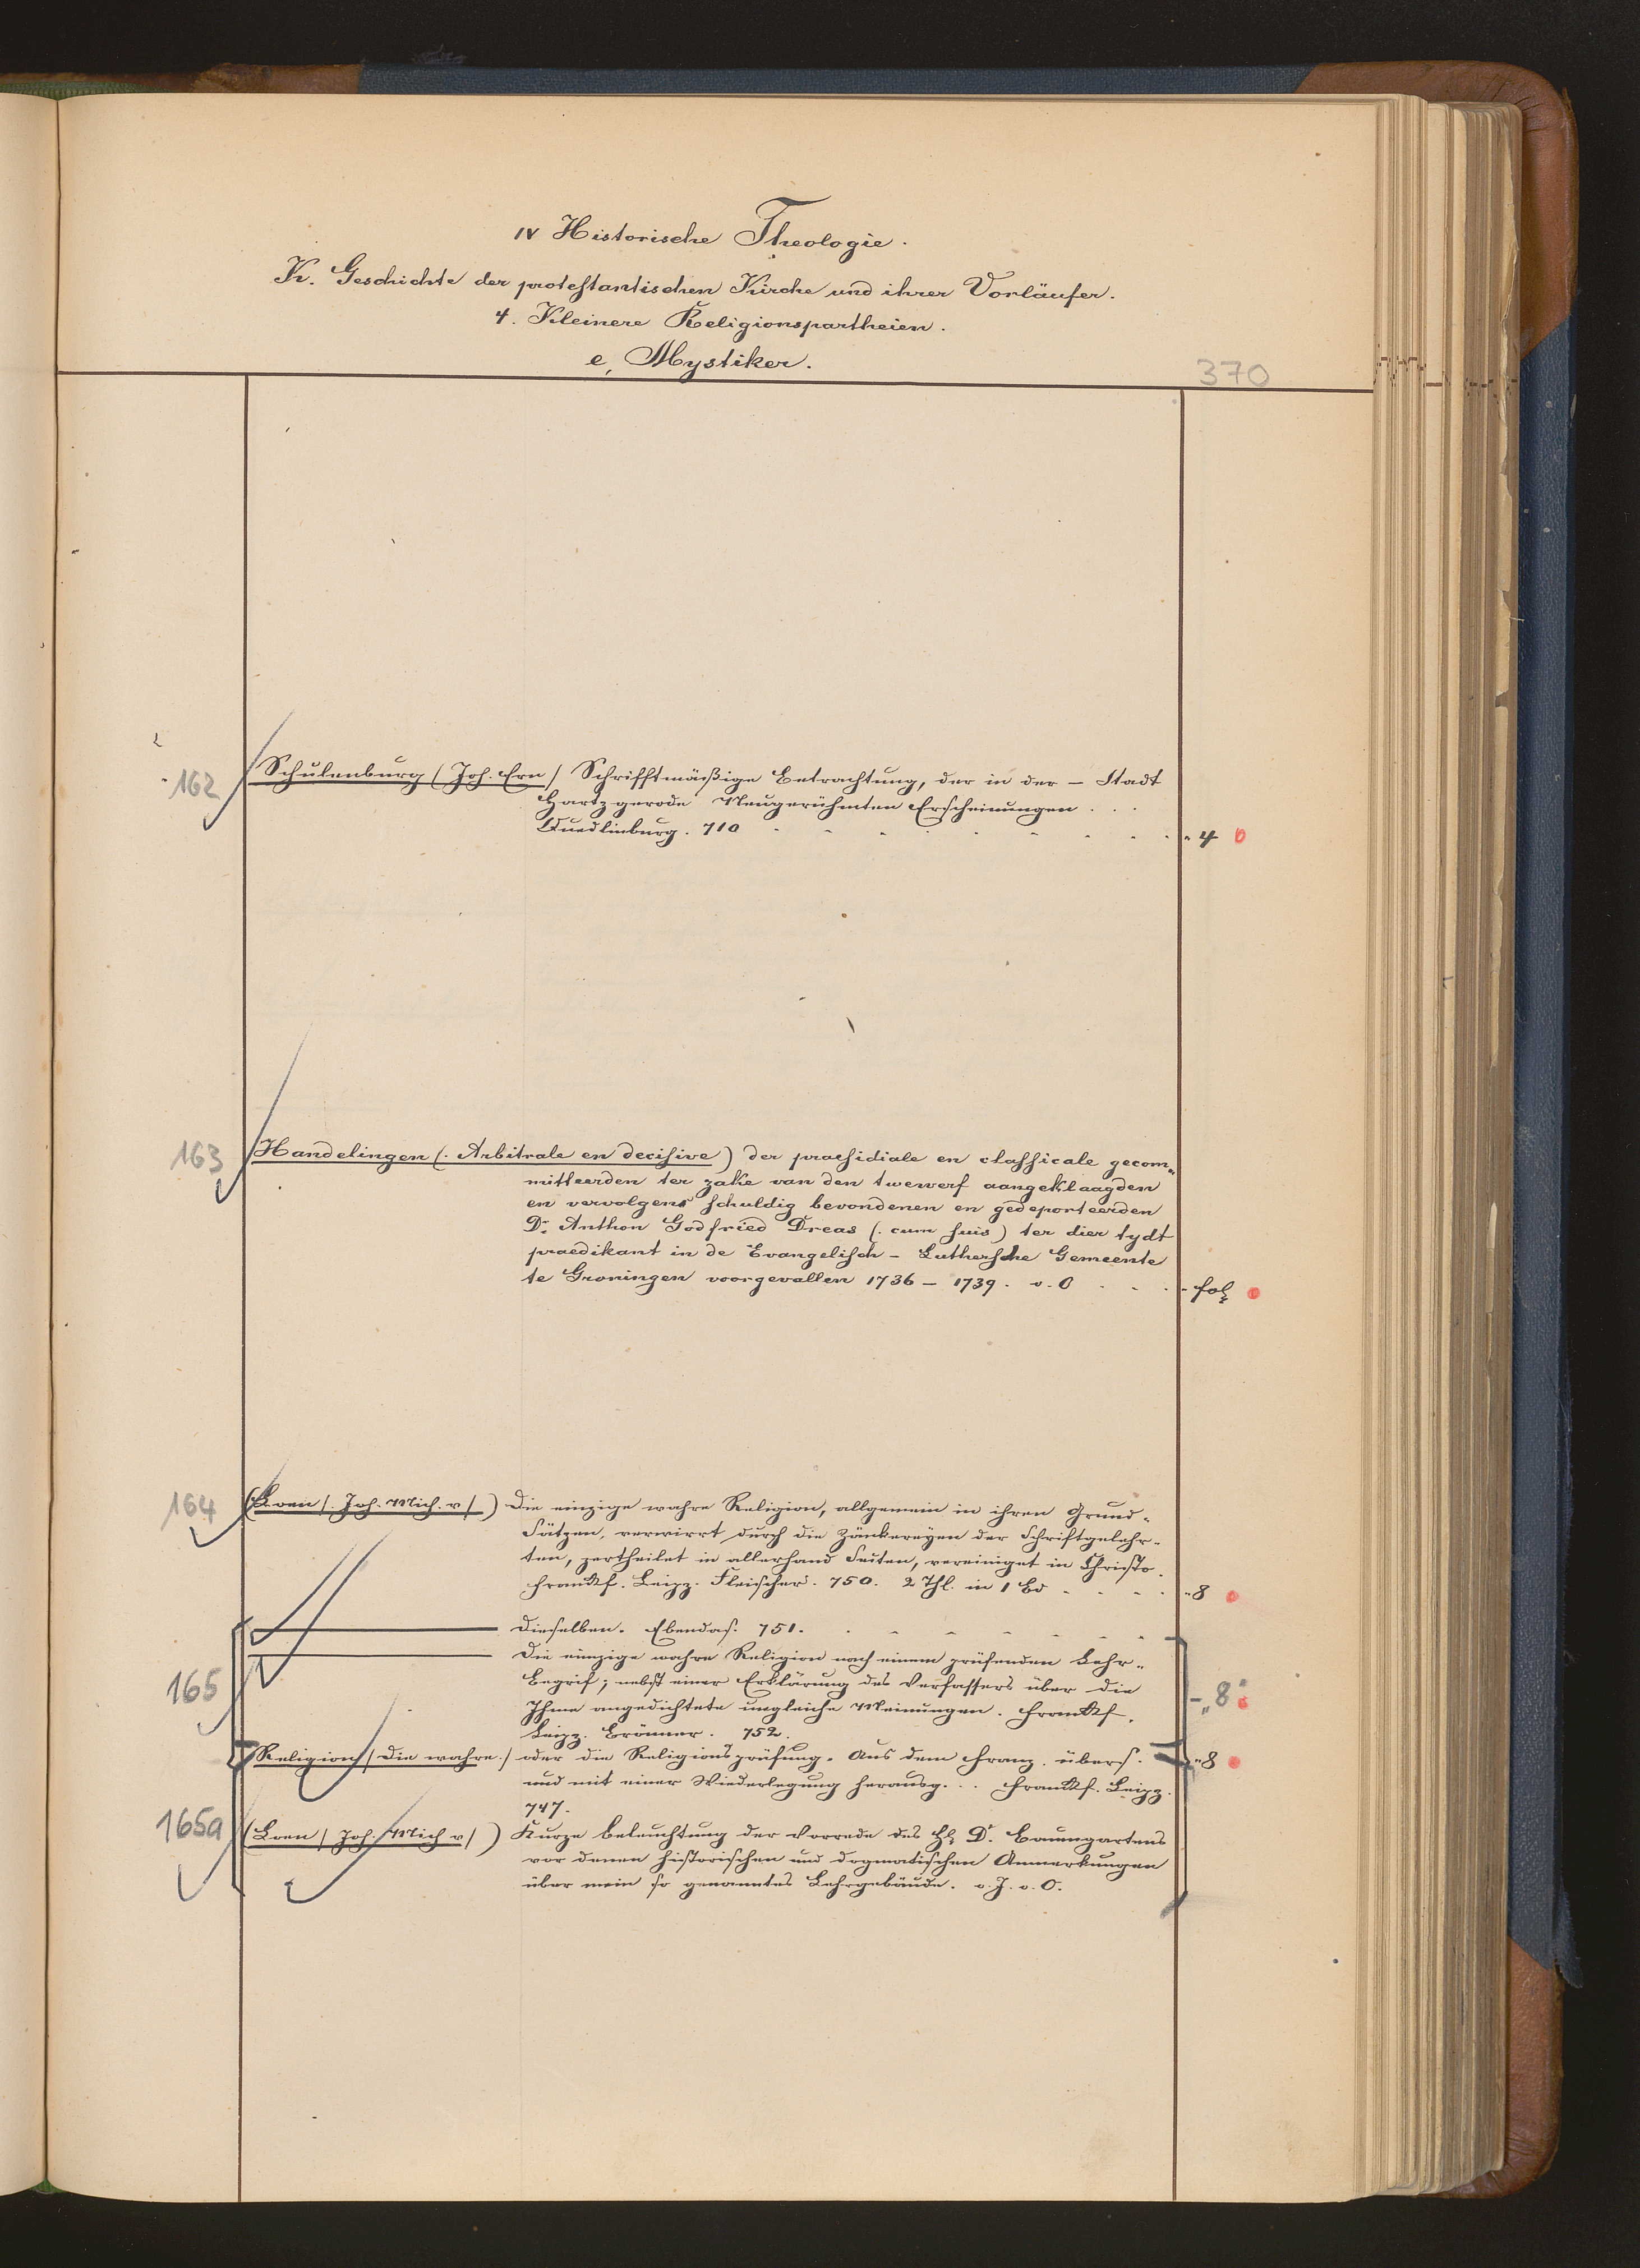 IV Historische Theologie.
K. Geschichte der protestantischen Kirche und ihrer Vorläufer.
4. Kleinere Religionspartheien.
e, Mystiker.
370
162 Schulenburg (Joh. Ern) Schrifftmäßige Betrachtung, der in der — Stadt
Hartzgerode Neugerühmten Erscheinungen . . .
Quedlinburg. 710 - - - - - - - - „ 4 0
163 Handelingen (. Arbitrale en decisive) der praesidiale en classicale gecom„
mitteerden ter zake van den twewerf aangeklaagden
en vervolgens schuldig bevondenen en gedeporteerden
Dr. Anthon Godfried Dreas (. cum suis) ter dier tydt
praedikant in de Evangelisch - Luthersche Gemeente
te Groningen voorgevallen 1736 — 1739. o. O - - - fol.
164 (Loen (. Joh. Mich. v.)) Die einzige wahre Religion, allgemein in ihren Grund„
Sätzen, verwirrt durch die Zänkereyen der Schriftgelehr„
ten, zertheilet in allerhand Secten, vereiniget in Christo.
Franckf. Leipz. Fleischer. 750. 2 Thl. in 1 Bd - - - - „ 8
Dieselben. Ebendas. 751. - - - - - -
165 Die einzige wahre Religion nach einem prüfenden Lehr„
Begrif; nebst einer Erklärung des Verfassers über die
Ihme angedichtete ungleiche Meinungen. Franckf. - „ 8
Leipz. Brönner. 752.
Religion (Die wahre.) oder die Religionsprüfung. Aus dem Franz. übers. „ 8
und mit einer Wiederlegung herausg. . . Franckf. Leipz.
747.
165a (Loen (Joh. Mich v.)) Kurze Beleuchtung der Vorrede des H. Dr. Baumgartens
vor denen historischen und dogmatischen Anmerkungen
über mein so genanntes Lehrgebäude. o. J. o. O.